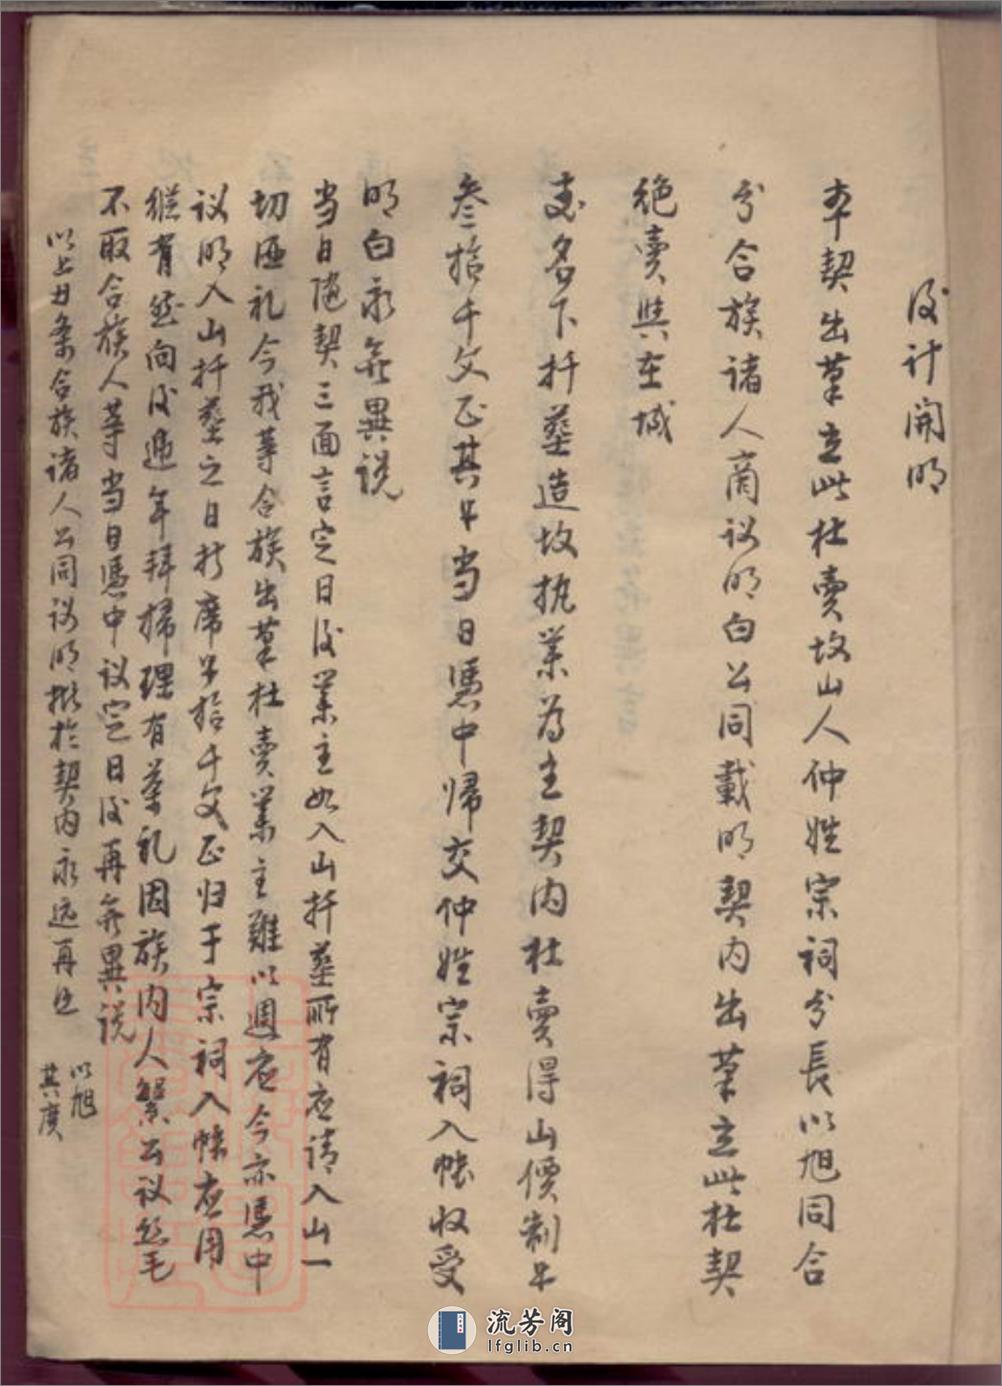 後计開明
本契出筆立此杜賣坟山人仲姓宗祠分長以旭同合
分合族诸人商议明白公同載明契内出筆立此杜契
絶賣與在城
名下扦塟造坟执業为主契内杜賣得山價制
叁拾千文正其 当日憑中帰交仲姓宗祠入帳收受
明白永無異说
当日随契三面言定日後業主如入山扦塟所有应请入山一
切 礼今我等合族出筆杜賣業主難以週应今亦憑中
议明入山扦塟之日折席 拾千文正归于宗祠入帳应用
向後遞年拜掃理有 礼因族内人繁公议丝毛
不取合族人等当日憑中议定日後再無異说
以上 条合族诸人公同议明批於契内永远再
以旭
其度
流芳阁
lfglib.cn